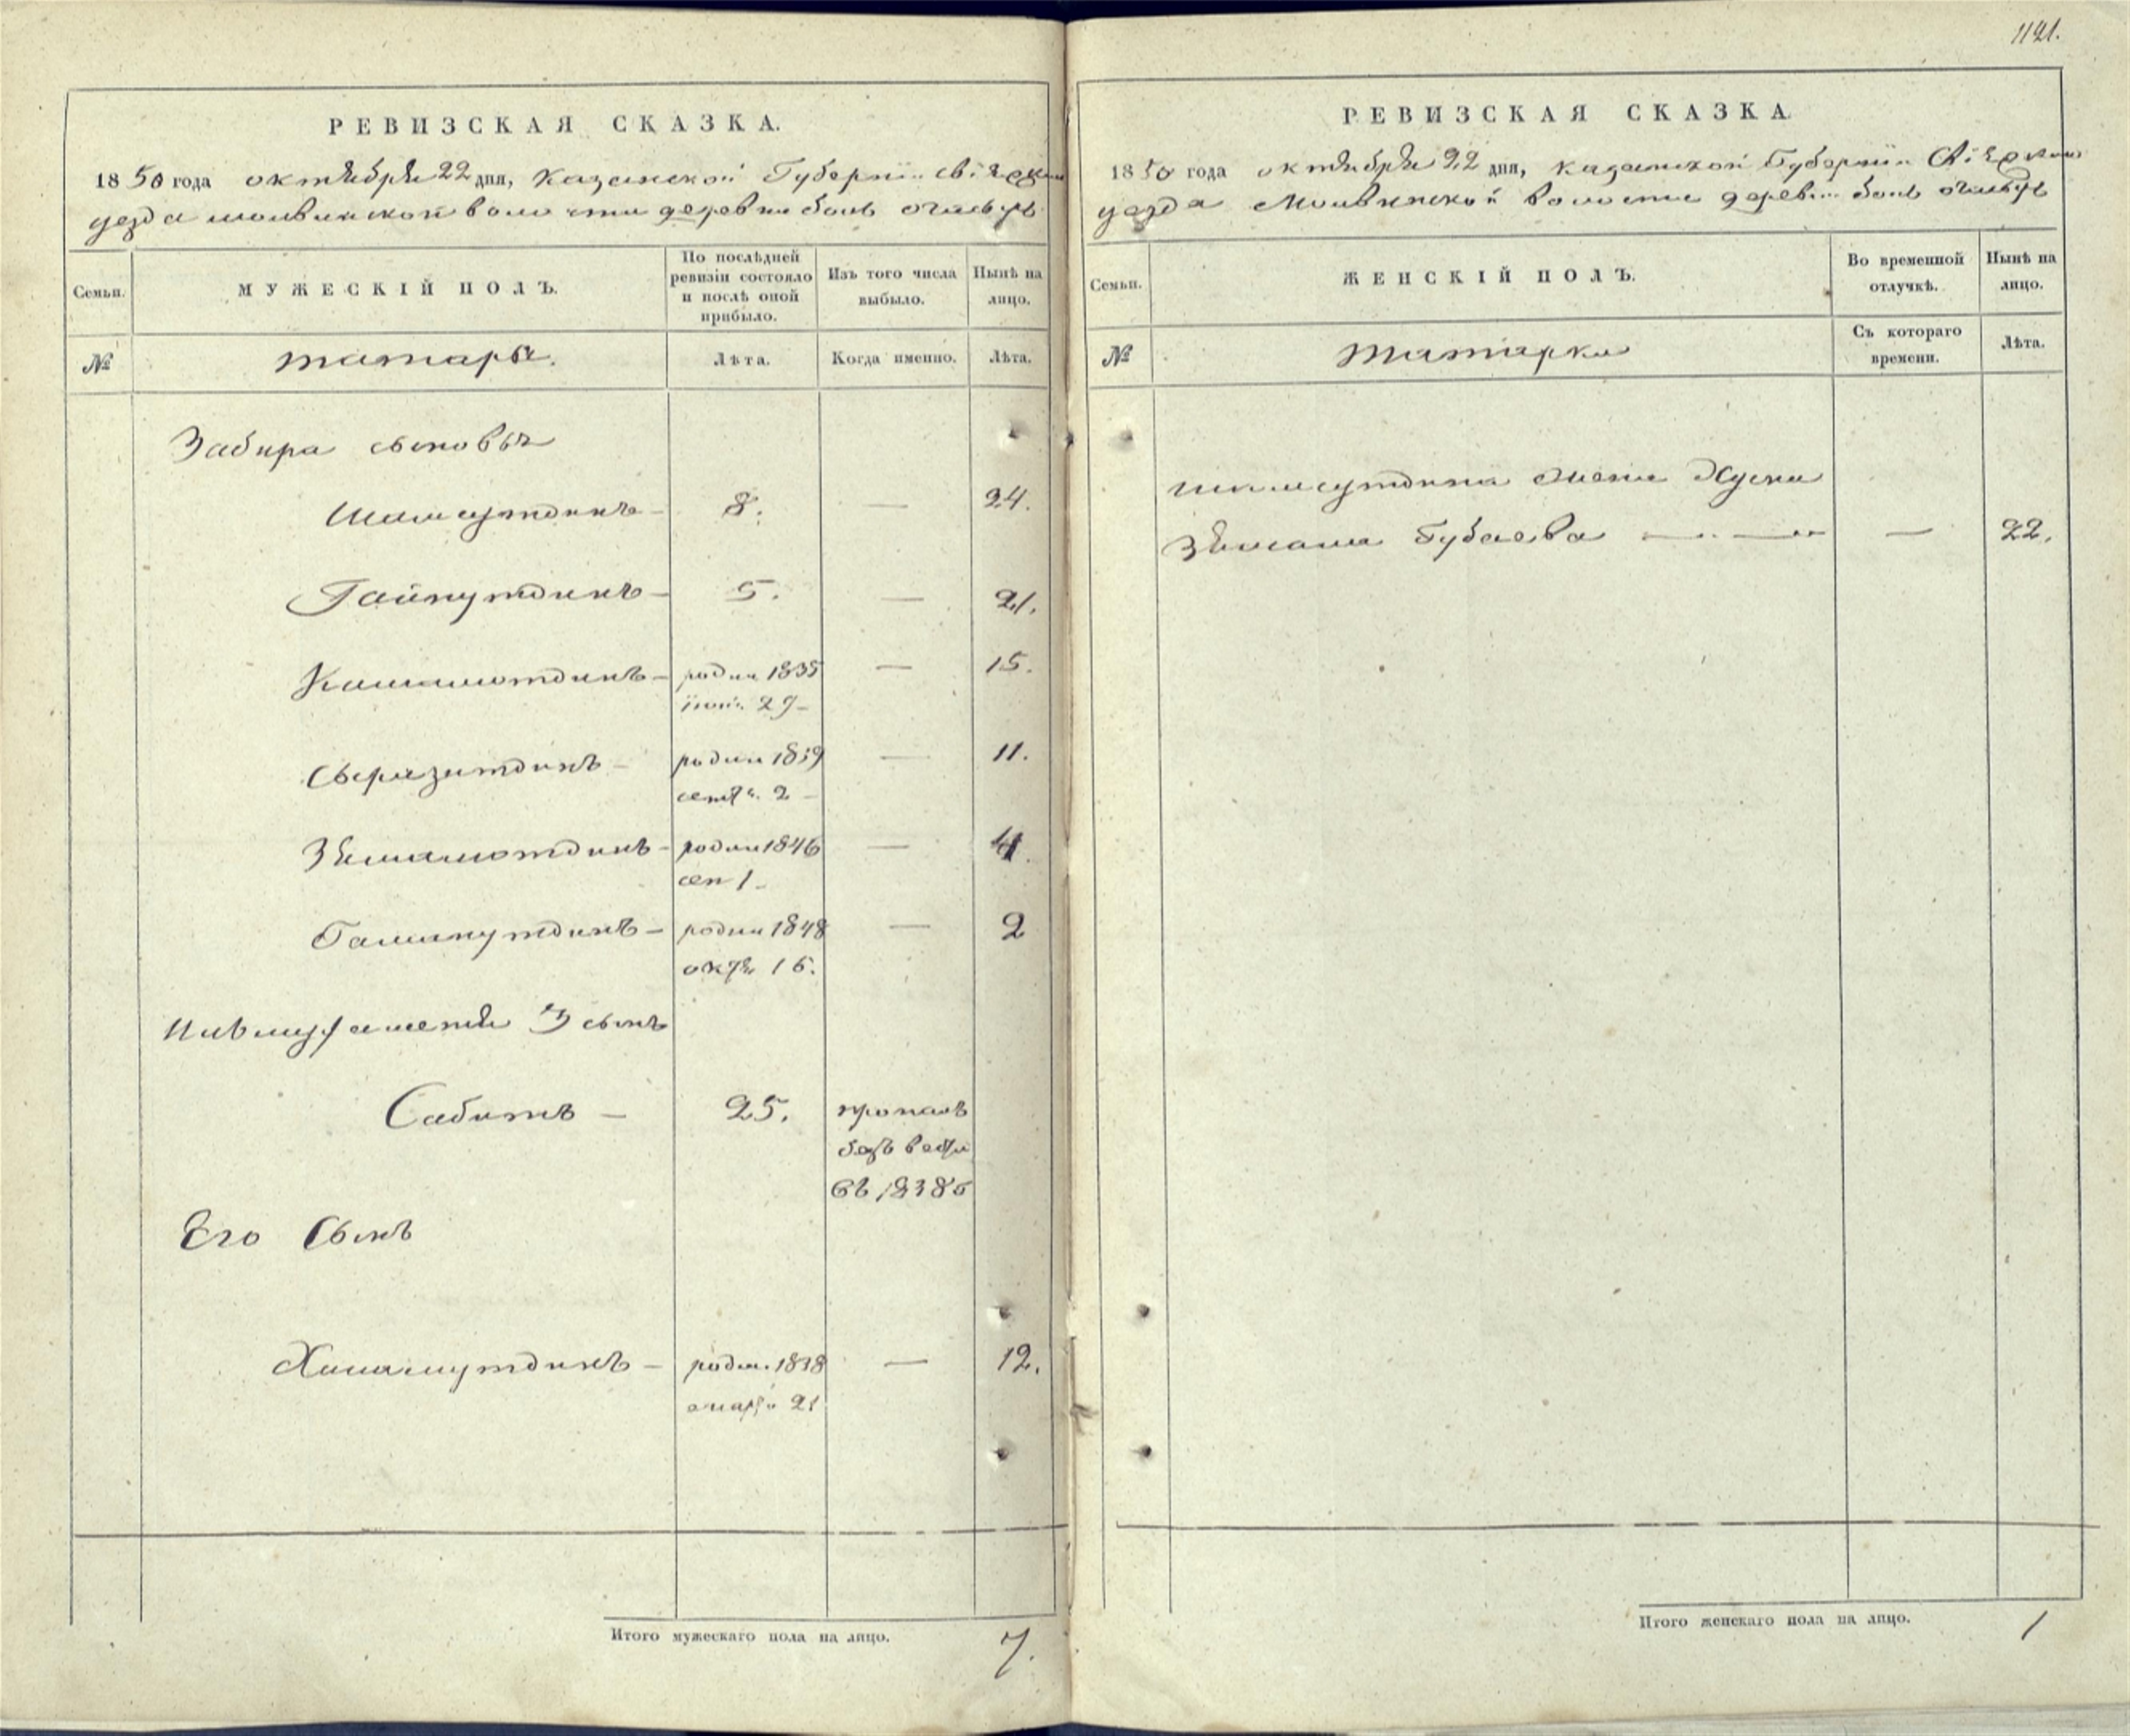 1121.
РЕВИЗСКАЯ СКАЗКА.
1850 года октября 22 дня, Казанской Губернiи Свiяжскаго
уезда молвинской волости деревни боль
Семьи.
МУЖЕСКIЙ ПОЛЪ.
По послѣдней ревизiи состояло и послѣ оной прибыло.
Изъ того числа выбыло.
Нынѣ на лицо.
№
татары.
Лѣта.
Когда именно.
Лѣта.
Забира сыновья
Шамсутдинъ — 8. — 24.
Гайнутдинъ — 5. — 21.
Камамотдинъ — родил 1835 — 15.
29 —
родил 1839 — 11.
сентя. 2 —
Зямамотдинъ — родил 1846 — 4.
сен 1 —
Гаминутдинъ — родил 1848 — 2
октя 15.
3 сынъ
Сабитъ — 25. пропалъ
безъ вести
въ
Его Сынъ
Хисамутдинъ — родил. 1838 — 12.
21
Итого мужескаго пола на лицо. 7.
РЕВИЗСКАЯ СКАЗКА
1850 года октября 22 дня, казанской Губернiи Свiяжскаго
уезда Молвинской волости деревни боль
Семьи.
ЖЕНСКIЙ ПОЛЪ.
Во временной отлучкѣ.
Нынѣ на лицо.
№
Татарки
Съ котораго времени.
Лѣта.
шамсутдина жена Хусни
Зямала Губаева — — — 22.
Итого женскаго пола на лицо. 1